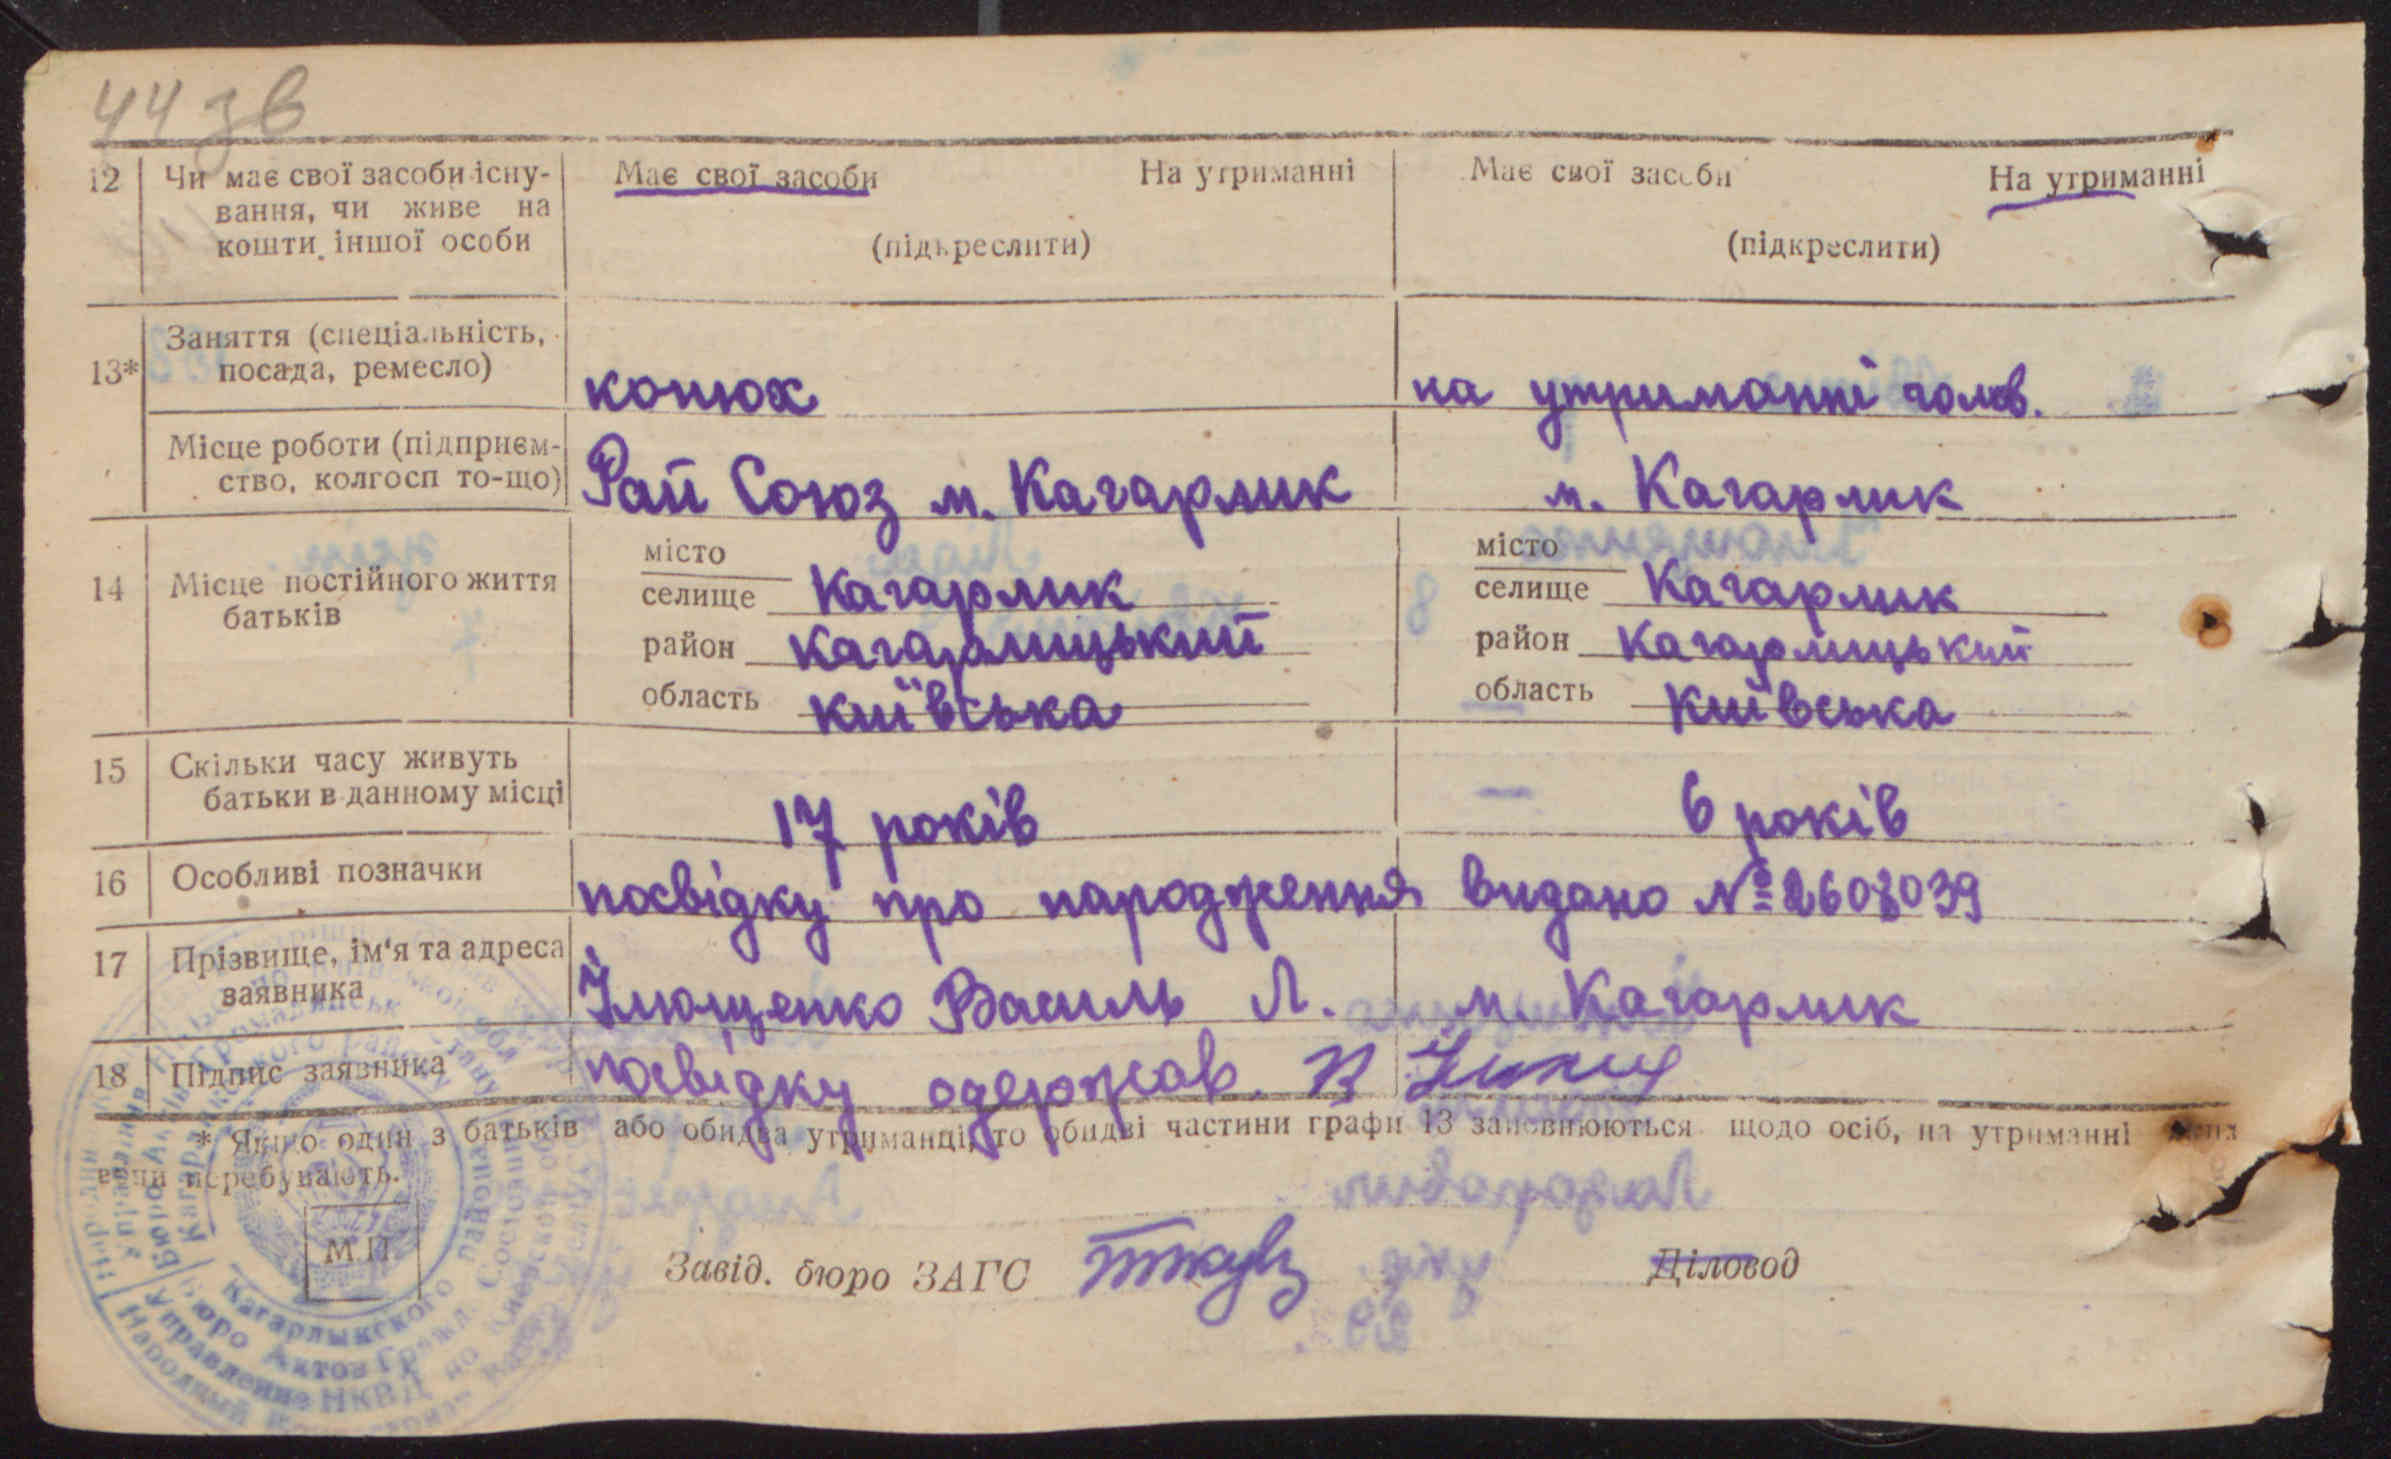 44 зв
12 Чи має свої засоби існу- Має свої засоби На утриманні Має свої засоби На утриманні
вання, чи живе на
кошти іншої особи (підкреслити) (підкреслити)
Заняття (спеціальність,
13* посада, ремесло) конюх на утриманні голов.
Місце роботи (підприєм-
ство, колгосп то-що) Рай Союз м. Кагарлик м. Кагарлик
місто місто
14 Місце постійного життя селище Кагарлик селище Кагарлик
батьків
район Кагарлицький район Кагарлицький
область Київська область Київська
15 Скільки часу живуть
батьки в данному місці 17 років 6 років
16 Особливі позначки посвідку про народження видано № 2608039
17 Прізвище, ім'я та адреса
заявника Ілющенко Василь Л. м. Кагарлик
18 Підпис заявника посвідку одержав. В
* Якщо один з батьків або обидва утриманці, то обидві частини графи 13 заповнюються щодо осіб, на утриманні
вони перебувають.
М.П.
Завід. бюро ЗАГС Діловод
Кагарлыкского района
Бюро Актов Гражд. Состояния
Управление НКВД по Киевской
Народный